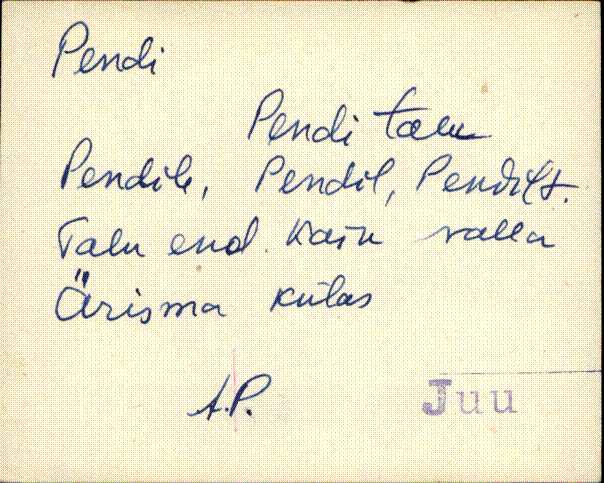 Pendi
Pendi talu
Pendile, Pendil, Pendilt.
Talu end. Kaiu valla
Ärisma külas
A.P.
Juu